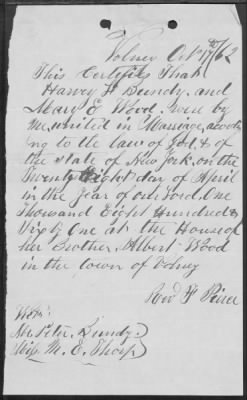 Volney Oct 17th/62
This Certifies That
Harvey F Bundy. and
Mary E Wood. were by
me, united in Marriage, accord
ing to the law of God. & of
the state of New York. on the
Twenty Eight day of April
in the Year of our Lord. One
Thousand Eight Hundred &
Sixty One at the House of
her Brother. Albert Wood
in the town of Volney
Rev F Pierce
Wit:
Mr Peter. Bundy.
M. E. Thorp